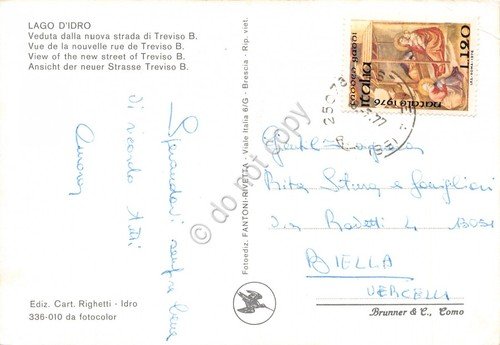 LAGO D'IDRO
Veduta dalla nuova strada di Treviso B.
Vue de la nouvelle rue de Treviso B.
View of the new street of Treviso B.
Ansicht der neuer Strasse Treviso B.
Sperandovi sempre bene
vi ricordo tutti
Ediz. Cart. Righetti - Idro
336-010 da fotocolor
Fotoediz. FANTONI-RIVETTA - Viale Italia 6/G - Brescia - Rip. viet.
© do not copy
L.120
italia
natale 1976
25073
(BS)
77
Gent. Sig.ra
Rita e famiglia
via
BIELLA
VERCELLI
Brunner & C., Como